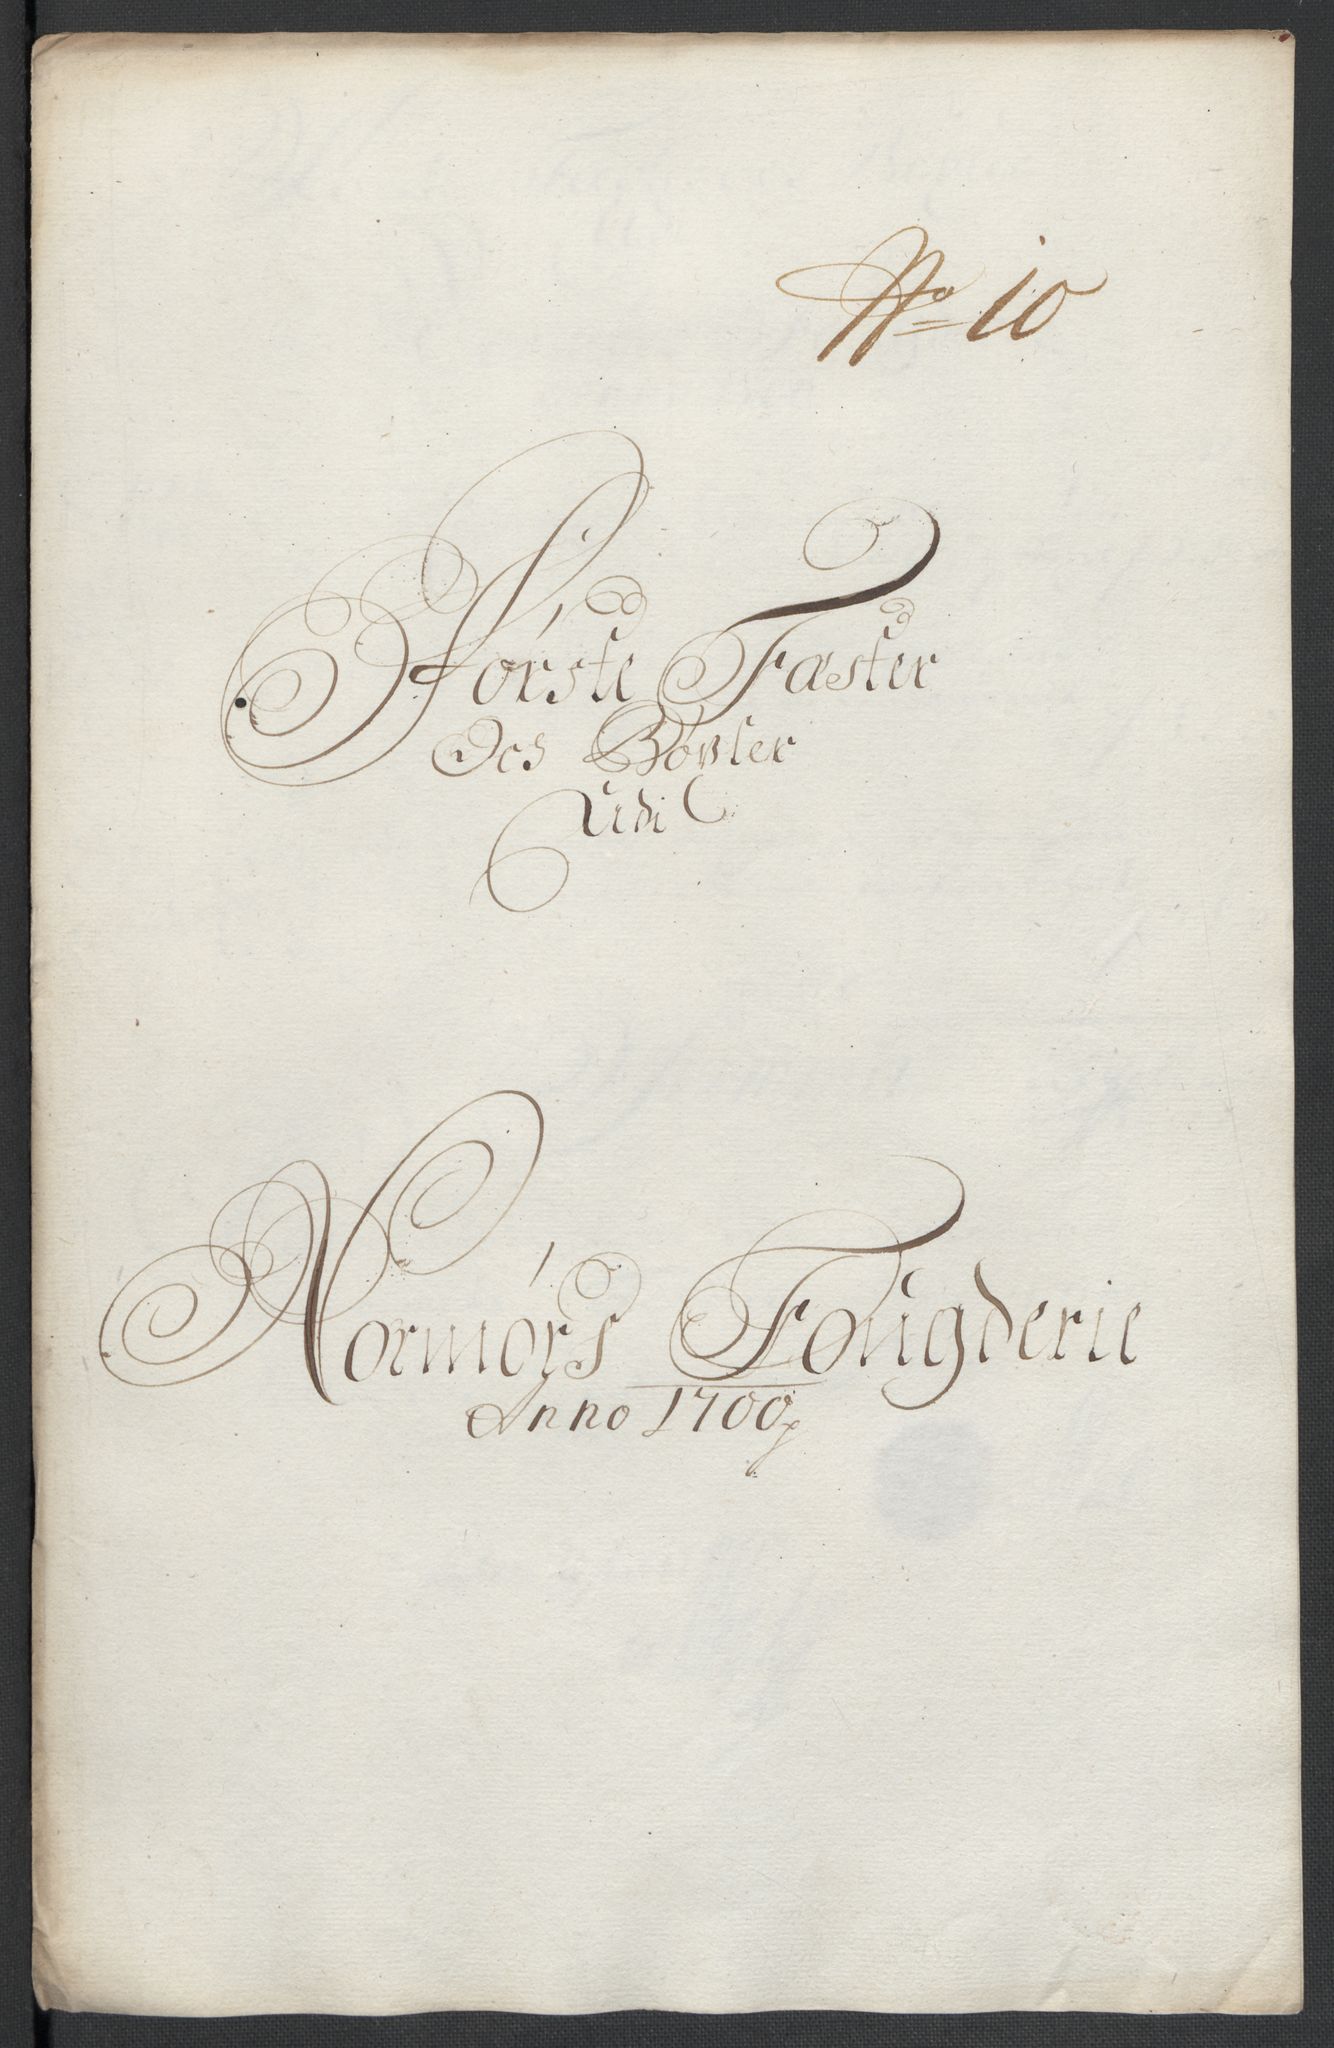 No 10
Første Fæster
Och Bøxler
Udi
Normørs Fougderie
Anno 1700